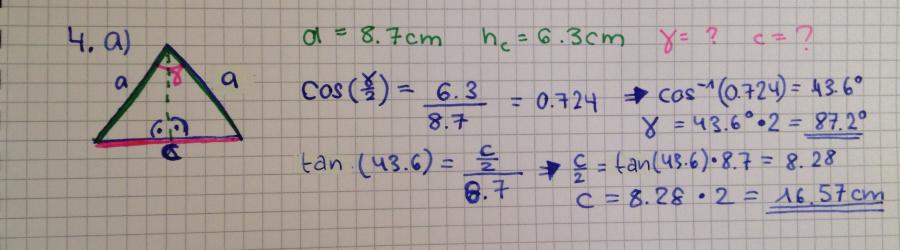 4. a) a = 8.7cm h_c = 6.3cm γ = ? c = ?
a γ a
cos(γ/2) = 6.3/8.7 = 0.724 → cos⁻¹(0.724) = 43.6°
γ = 43.6° · 2 = 87.2°
c
tan (43.6) = (c/2)/8.7 → c/2 = tan(43.6) · 8.7 = 8.28
c = 8.28 · 2 = 16.57cm